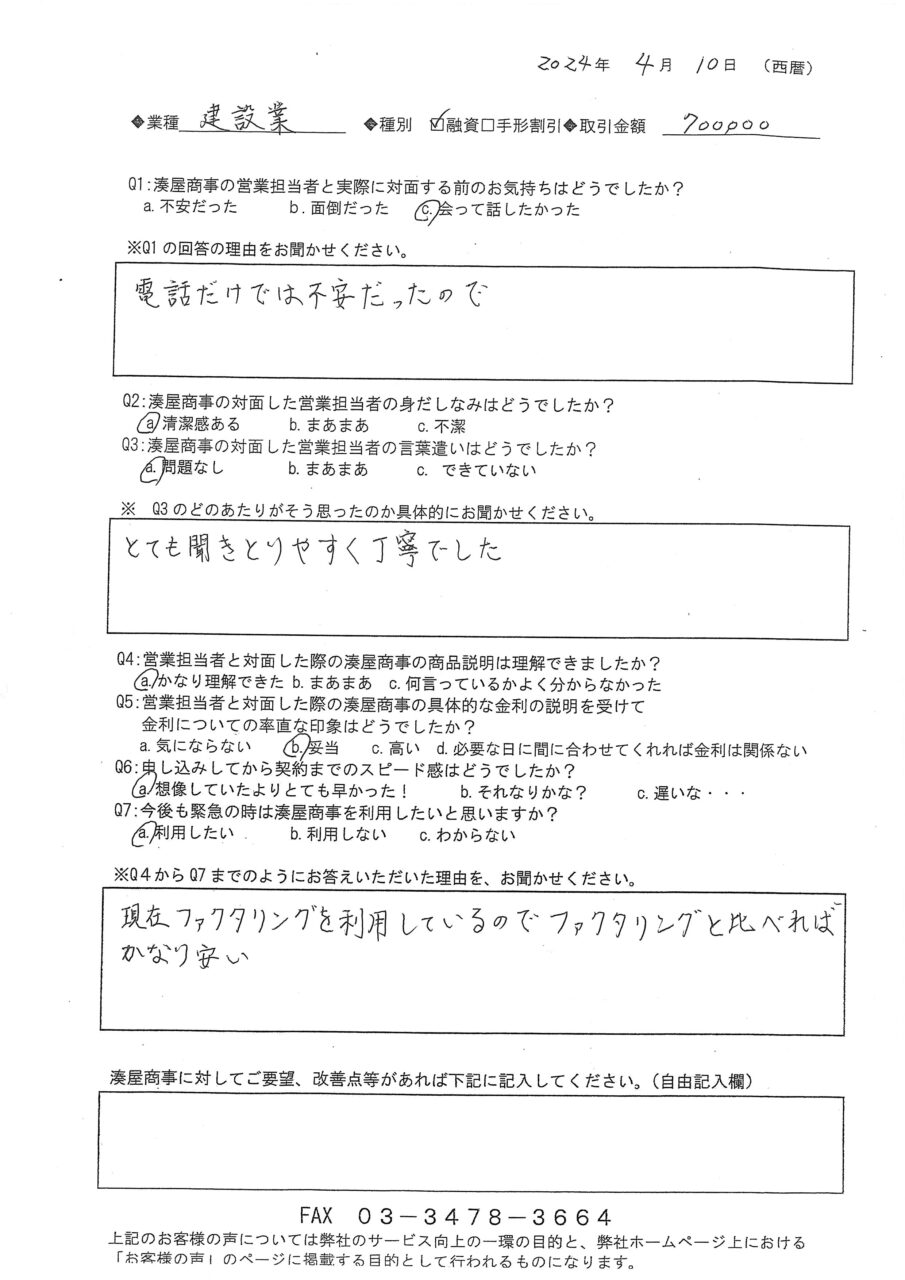 2024年 4月 10日 （西暦）
◆業種 建設業 ◆種別 ☑融資□手形割引◆取引金額 700000
Q1:湊屋商事の営業担当者と実際に対面する前のお気持ちはどうでしたか？
a.不安だった b.面倒だった c.会って話したかった
※Q1の回答の理由をお聞かせください。
電話だけでは不安だったので
Q2:湊屋商事の対面した営業担当者の身だしなみはどうでしたか？
a清潔感ある b.まあまあ c.不潔
Q3:湊屋商事の対面した営業担当者の言葉遣いはどうでしたか？
a.問題なし b.まあまあ c. できていない
※ Q3のどのあたりがそう思ったのか具体的にお聞かせください。
とても聞きとりやすく丁寧でした
Q4:営業担当者と対面した際の湊屋商事の商品説明は理解できましたか？
a.かなり理解できた b.まあまあ c.何言っているかよく分からなかった
Q5:営業担当者と対面した際の湊屋商事の具体的な金利の説明を受けて
金利についての率直な印象はどうでしたか？
a.気にならない b.妥当 c.高い d.必要な日に間に合わせてくれれば金利は関係ない
Q6:申し込みしてから契約までのスピード感はどうでしたか？
a想像していたよりとても早かった！ b.それなりかな？ c.遅いな・・・
Q7:今後も緊急の時は湊屋商事を利用したいと思いますか？
a.利用したい b.利用しない c.わからない
※Q4からQ7までのようにお答えいただいた理由を、お聞かせください。
現在ファクタリングを利用しているのでファクタリングと比べれば
かなり安い
湊屋商事に対してご要望、改善点等があれば下記に記入してください。（自由記入欄）
FAX 03－3478－3664
上記のお客様の声については弊社のサービス向上の一環の目的と、弊社ホームページ上における
「お客様の声」のページに掲載する目的として行われるものになります。